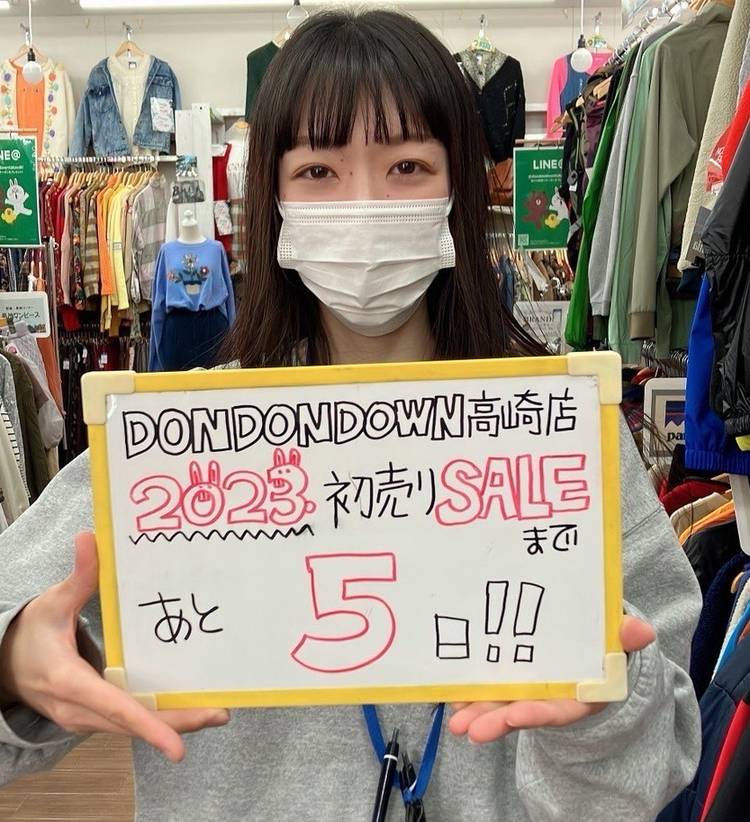 DONDONDOWN高崎店
2023.初売りSALE
まで
あと 5 日!!
INE@
LINE@
BRAND
pata